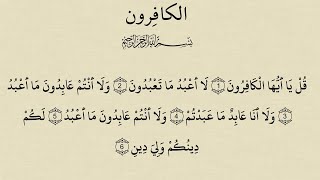 الكافرون
بِسْمِ اللَّهِ الرَّحْمَٰنِ الرَّحِيمِ
قُلْ يَا أَيُّهَا الْكَافِرُونَ ۝1 لَا أَعْبُدُ مَا تَعْبُدُونَ ۝2 وَلَا أَنْتُمْ عَابِدُونَ مَا أَعْبُدُ
۝3 وَلَا أَنَا عَابِدٌ مَا عَبَدْتُمْ ۝4 وَلَا أَنْتُمْ عَابِدُونَ مَا أَعْبُدُ ۝5 لَكُمْ
دِينُكُمْ وَلِيَ دِينِ ۝6